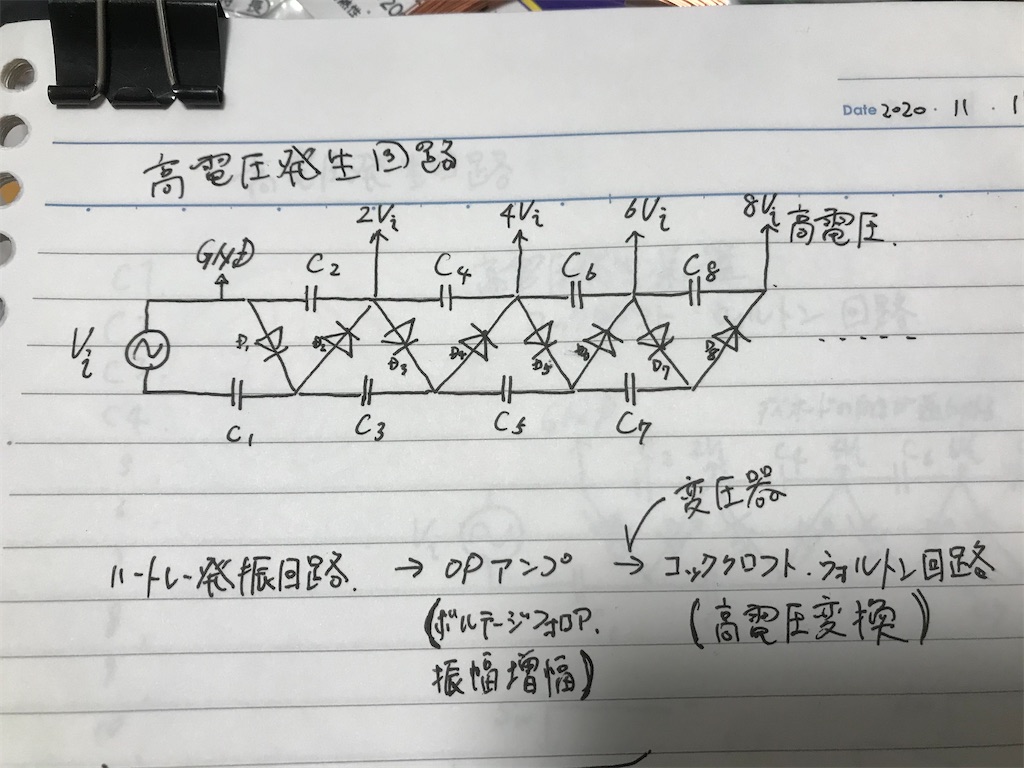 Date 2020. 11 . 1
高電圧発生回路
2Vi 4Vi 6Vi 8Vi
高電圧.
GND C2 C4 C6 C8
Vi D1 D2 D3 D4 D5 D6 D7 D8
C1 C3 C5 C7
変圧器
ハートレー発振回路. → OPアンプ → コッククロフト.ウォルトン回路
(ボルテージフォロア. (高電圧変換)
振幅増幅)